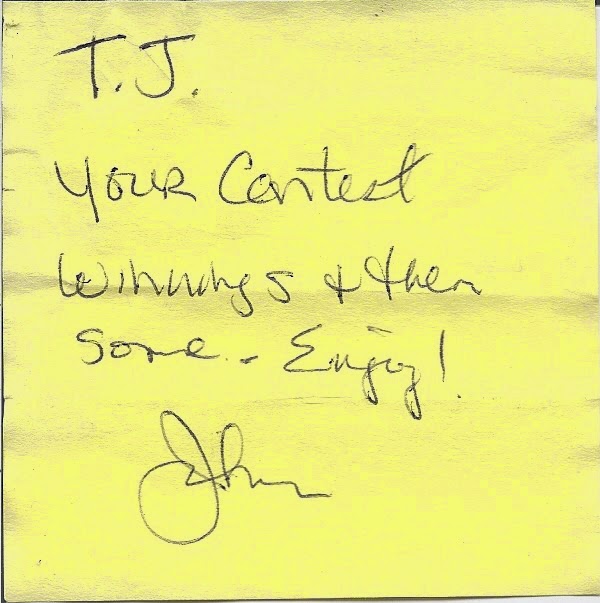 T.J.
Your Contest
Winnings & then
some - Enjoy!
John